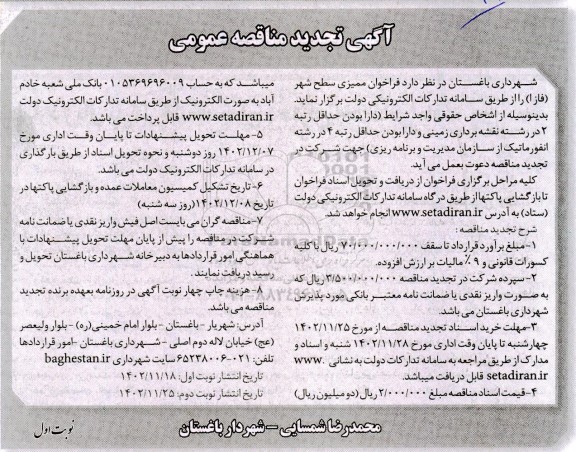 آگهی تجدید مناقصه عمومی
شهرداری باغستان در نظر دارد فراخوان ممیزی سطح شهر
(فاز۱) را از طریق سامانه تدارکات الکترونیکی دولت برگزار نماید.
بدینوسیله از اشخاص حقوقی واجد شرایط (دارا بودن حداقل رتبه
۲ در رشته نقشه برداری زمینی و دارا بودن حداقل رتبه ۴ در رشته
انفورماتیک از سازمان مدیریت و برنامه ریزی) جهت شرکت در
تجدید مناقصه دعوت بعمل می آید.
کلیه مراحل برگزاری فراخوان از دریافت و تحویل اسناد فراخوان
تا بازگشایی پاکتها از طریق درگاه سامانه تدارکات الکترونیکی دولت
(ستاد) به آدرس www.setadiran.ir انجام خواهد شد.
شرح تجدید مناقصه :
۱-مبلغ برآورد قرارداد تا سقف ۷۰/۰۰۰/۰۰۰/۰۰۰ ریال با کلیه
کسورات قانونی و ۹٪ مالیات بر ارزش افزوده.
۲-سپرده شرکت در تجدید مناقصه ۳/۵۰۰/۰۰۰/۰۰۰ ریال که
به صورت واریز نقدی یا ضمانت نامه معتبر بانکی مورد پذیرش
شهرداری باغستان می باشد.
۳-مهلت خرید اسناد تجدید مناقصه از مورخ ۱۴۰۲/۱۱/۲۵
چهارشنبه تا پایان وقت اداری مورخ ۱۴۰۲/۱۱/۲۸ شنبه و اسناد و
مدارک از طریق مراجعه به سامانه تدارکات دولت به نشانی www.
setadiran.ir قابل دریافت میباشد.
۴-قیمت اسناد مناقصه مبلغ ۲/۰۰۰/۰۰۰ ریال (دو میلیون ریال)
میباشد که به حساب ۰۱۰۵۳۶۹۶۹۶۰۰۹ بانک ملی شعبه خادم
آباد به صورت الکترونیک از طریق سامانه تدارکات الکترونیک دولت
www.setadiran.ir قابل پرداخت می باشد.
۵- مهلت تحویل پیشنهادات تا پایان وقت اداری مورخ
۱۴۰۲/۱۲/۰۷ روز دوشنبه و نحوه تحویل اسناد از طریق بارگذاری
در سامانه تدارکات الکترونیک دولت می باشد.
۶- تاریخ تشکیل کمیسیون معاملات عمده و بازگشایی پاکتها در
تاریخ ۱۴۰۲/۱۲/۰۸(روز سه شنبه)
۷-مناقصه گران می بایست اصل فیش واریز نقدی یا ضمانت نامه
شرکت در مناقصه را پیش از پایان مهلت تحویل پیشنهادات با
هماهنگی امور قراردادها به دبیرخانه شهرداری باغستان تحویل و
رسید دریافت نمایند.
۸- هزینه چاپ چهار نوبت آگهی در روزنامه بعهده برنده تجدید
مناقصه می باشد.
آدرس: شهریار - باغستان - بلوار امام خمینی(ره) - بلوار ولیعصر
(عج) خیابان لاله دوم اصلی - شهرداری باغستان - امور قراردادها
تلفن: ۰۲۱-۶۵۲۳۸۰۰۶ سایت شهرداری baghestan.ir
تاریخ انتشار نوبت اول: ۱۴۰۲/۱۱/۱۸
تاریخ انتشار نوبت دوم: ۱۴۰۲/۱۱/۲۵
محمدرضا شمسایی - شهردار باغستان
نوبت اول